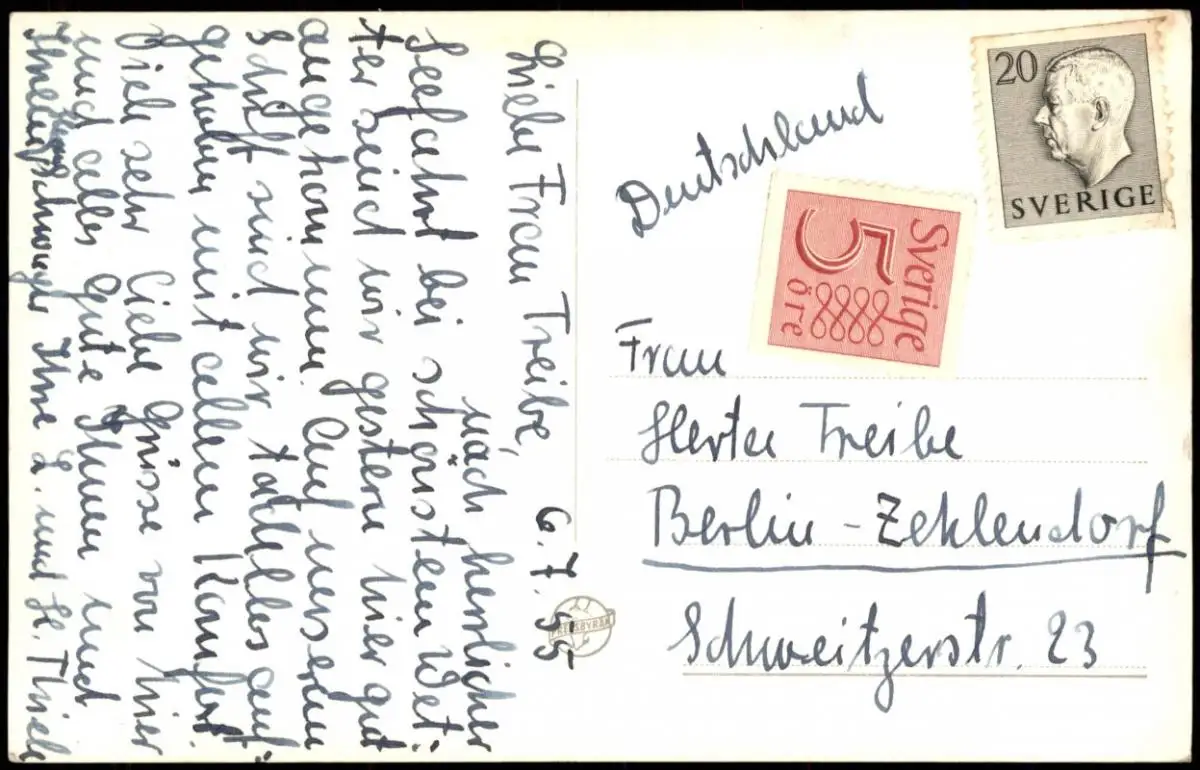 Liebe Frau Treibe, 6.7.55
nach herrlicher
Seefahrt bei schönstem Wet-
ter sind wir gestern hier gut
angekommen. Auf unserem
Schiff sind wir tadellos auf-
gehoben mit allem Komfort.
Viele sehr liebe Grüsse von hier
und alles Gute Ihnen und
Ihrer
Ihre L. und H. Thiele
PRESSBYRÅN
Deutschland
20
SVERIGE
Sverige
5
öre
Frau
Herta Treibe
Berlin-Zehlendorf
Schweitzerstr. 23